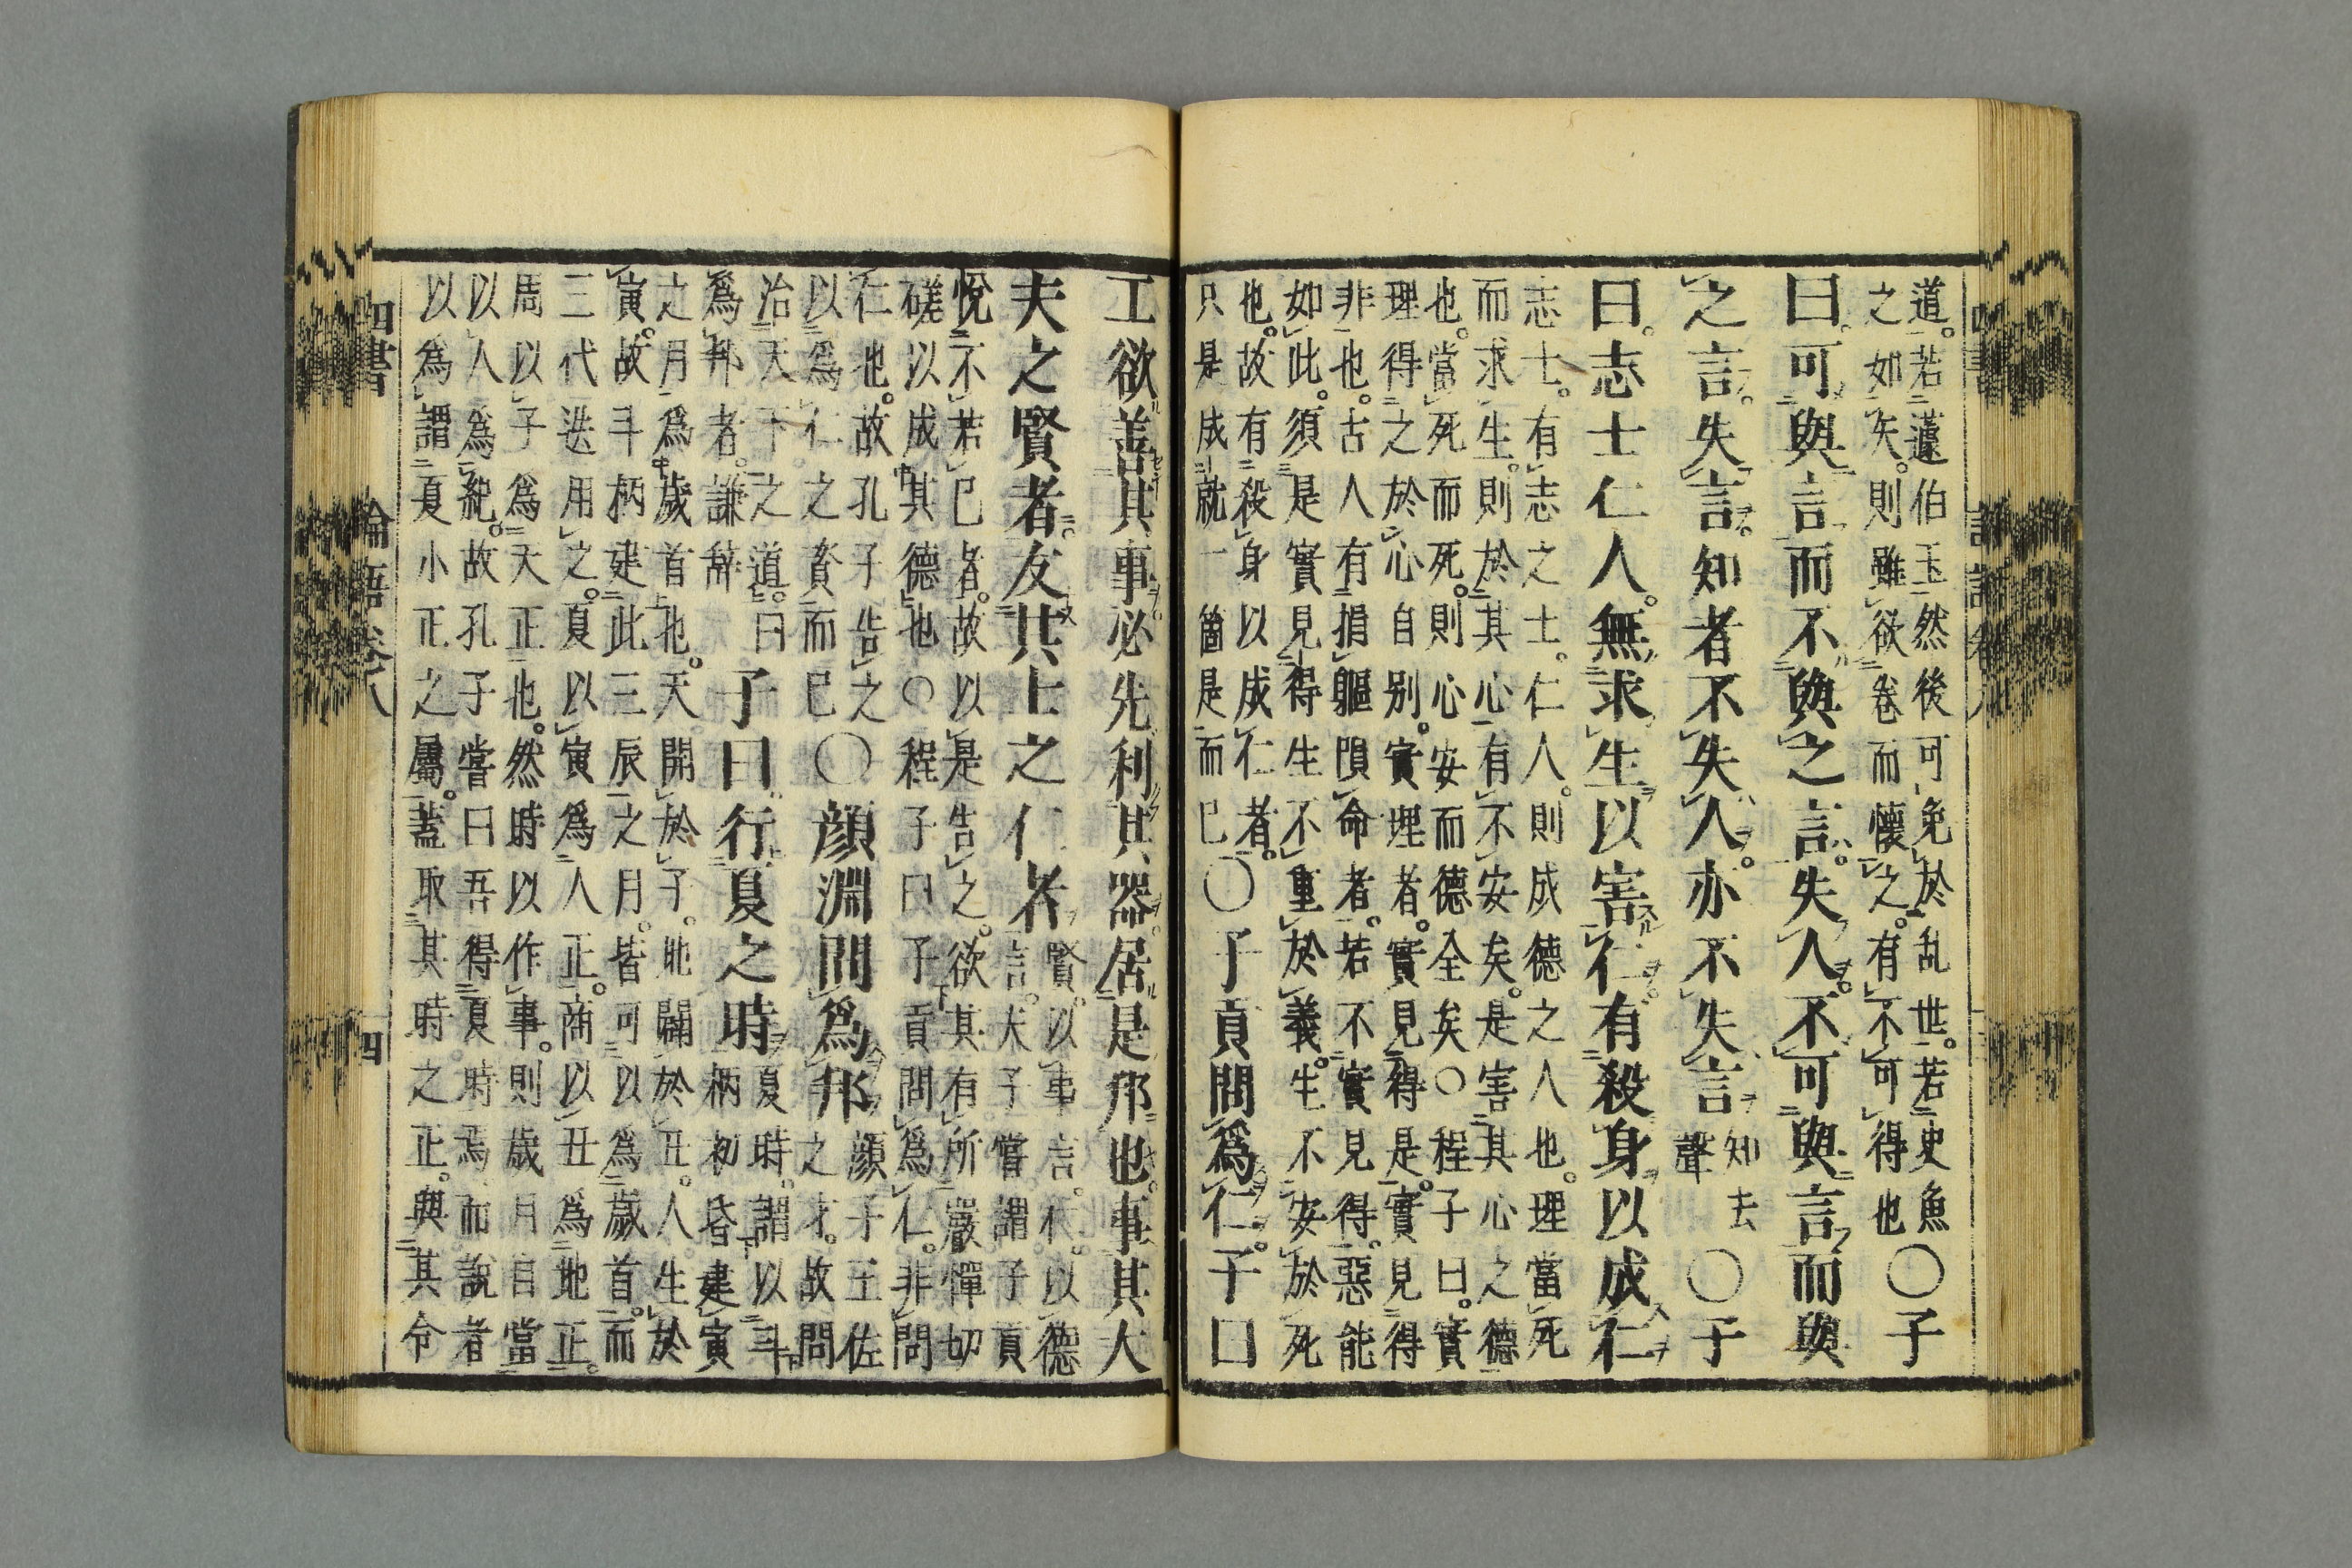 道。若蘧伯玉然後可免於乱世。若史魚
之如矢。則雖欲卷而懷之。有不可得也
〇子
曰。可與言而不與之言。失人。不可與言而與
之言。失言。知者不失人。亦不失言
知去
聲
〇子
曰。志士仁人。無求生以害仁。有殺身以成仁
志士。有志之士。仁人。則成德之人也。理當死
而求生。則於其心有不安矣。是害其心之德
也。當死而死。則心安而德全矣〇程子曰。實
理得之於心自別。實理者。實見得是。實見得
非也。古人有捐軀隕命者。若不實見得。惡能
如此。須是實見得生不重於義。生不安於死
也。故有殺身以成仁者。
只是成就一箇是而已
〇子貢問爲仁。子曰
工欲善其事必先利其器。居是邦也。事其大
夫之賢者。友其士之仁者
賢。以事言。仁。以德
言。夫子嘗謂子貢
悅不若已者。故以是告之。欲其有所嚴憚切
磋以成其德也〇程子曰子貢問爲仁。非問
仁也。故孔子告之
以爲仁之資而已
〇顔淵問爲邦
顔子王佐
之才。故問
治天下之道。曰
爲邦者。謙辭
子曰。行夏之時
夏時。謂以斗
柄初昏建寅
之月爲歲首也。天開於子。地闢於丑。人生於
寅。故斗柄建此三辰之月。皆可以爲歲首。而
三代迭用之。夏以寅爲人正。商以丑爲地正。
周以子爲天正也。然時以作事。則歲月自當
以人爲紀。故孔子嘗曰吾得夏時焉而説者
以爲謂夏小正之屬。蓋取其時之正。與其令
四書 論語卷八 四